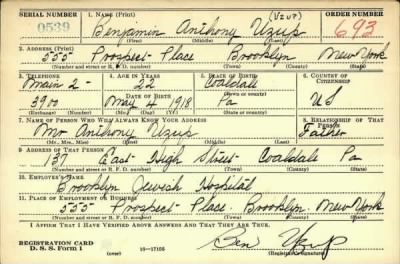 SERIAL NUMBER 1. NAME (Print) ORDER NUMBER
0539 Benjamin Anthony Uzup (VZUP) 693
(First) (Middle) (Last)
2. ADDRESS (Print)
555 Prospect Place Brooklyn New York
(Number and street or R. F. D. number) (Town) (County) (State)
3. TELEPHONE 4. AGE IN YEARS 5. PLACE OF BIRTH 6. COUNTRY OF CITIZENSHIP
Main 2- 22 Coaldale
DATE OF BIRTH (Town or county)
3900 May 4 1918 Pa US
(Exchange) (Number) (Mo.) (Day) (Yr.) (State or country)
7. NAME OF PERSON WHO WILL ALWAYS KNOW YOUR ADDRESS 8. RELATIONSHIP OF THAT PERSON
Mr Anthony Uzup Father
(Mr., Mrs., Miss) (First) (Middle) (Last)
9. ADDRESS OF THAT PERSON
137 East High Street Coaldale Pa
(Number and street or R. F. D. number) (Town) (County) (State)
10. EMPLOYER'S NAME
Brooklyn Jewish Hospital
11. PLACE OF EMPLOYMENT OR BUSINESS
555 Prospect Place Brooklyn New York
(Number and street or R. F. D. number) (Town) (County) (State)
I AFFIRM THAT I HAVE VERIFIED ABOVE ANSWERS AND THAT THEY ARE TRUE.
REGISTRATION CARD
D. S. S. Form 1 (over) 16—17105 Ben Uzup
(Registrant's signature)